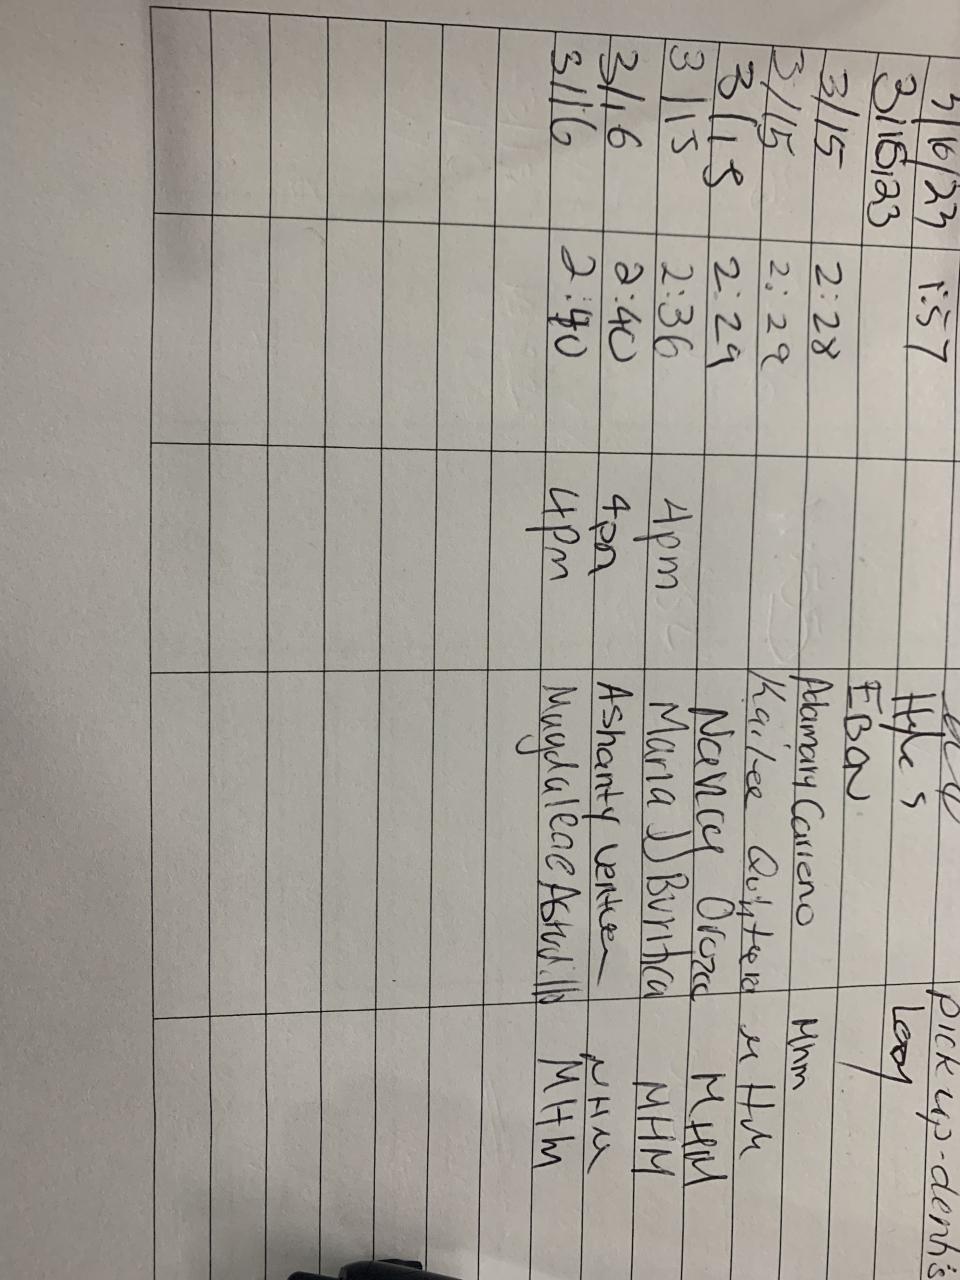 3/16/23 1:57 pick up-dentis
3/16/23 Hyles
EBON
3/15 2:28 Adamary Carreno Mhm
3/15 2:29 Kailee Quintera MHM
3/15 2:29 Nancy Orozco MHM
3/15 2:36 4pm Maria D Buritica MHM
3/16 2:40 4pm Ashanty MHM
3/16 2:40 4pm Magdalene Astudillo MHM